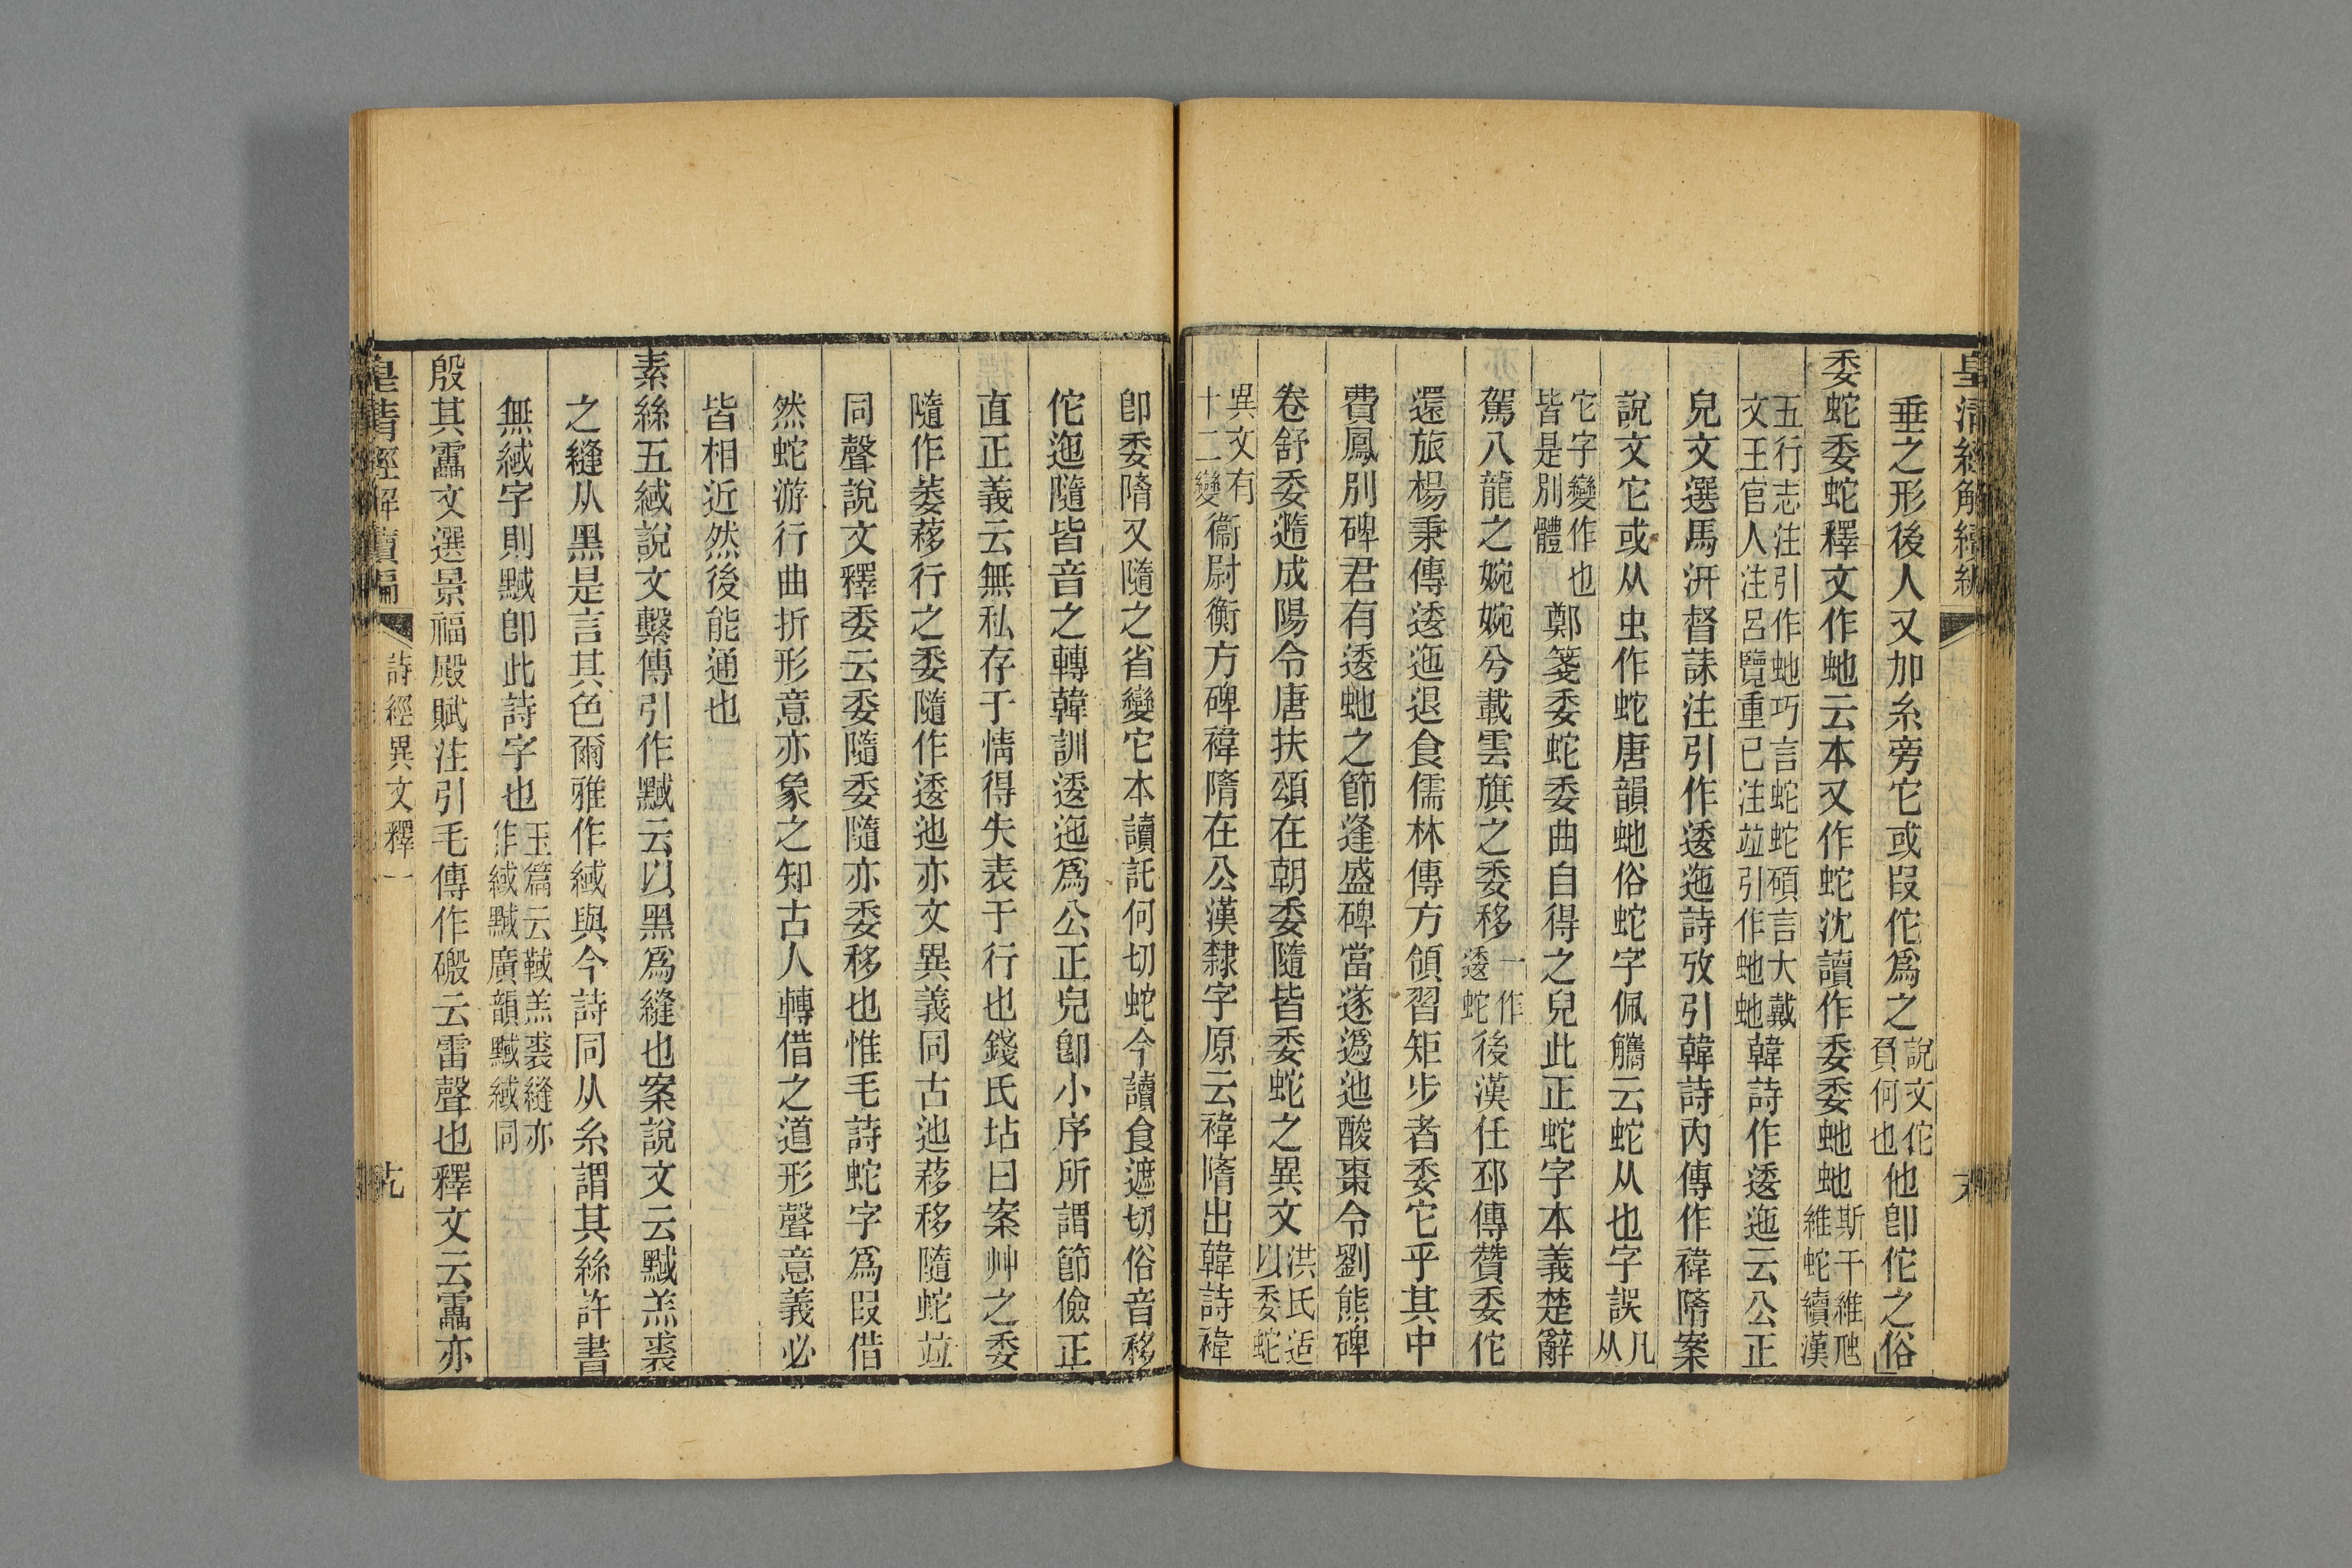 皇清經解續編
垂之形後人又加糸旁它或叚佗爲之說文佗負何也他卽佗之俗
委蛇委蛇釋文作虵云本又作蛇沈讀作委委虵虵斯干維虺維蛇續漢
五行志注引作虵巧言蛇蛇碩言大戴文王官人注呂覽重已注竝引作虵虵韓詩作逶迤云公正
皃文選馬汧督誄注引作逶迤詩攷引韓詩內傳作褘隋案
說文它或从虫作蛇唐韻虵俗蛇字佩觿云蛇从也字誤凡从
它字變作也皆是別體鄭箋委蛇委曲自得之皃此正蛇字本義楚辭
駕八龍之婉婉兮載雲旗之委移一作逶蛇後漢任邳傳贊委佗
還旅楊秉傳逶迤退食儒林傳方領習矩步者委它乎其中
費鳳別碑君有逶虵之節逄盛碑當遂逶迆酸棗令劉熊碑
卷舒委遀成陽令唐扶頌在朝委隨皆委蛇之異文洪氏适以委蛇
異文有十二變衞尉衡方碑褘隋在公漢隸字原云褘隋出韓詩褘
卽委隋又隨之省變它本讀託何切蛇今讀食遮切俗音移
佗迤隨皆音之轉韓訓逶迤爲公正皃卽小序所謂節儉正
直正義云無私存于情得失表于行也錢氏坫曰案艸之委
隨作萎蓩行之委隨作逶迆亦文異義同古迆蓩移隨蛇竝
同聲說文釋委云委隨委隨亦委移也惟毛詩蛇字爲叚借
然蛇游行曲折形意亦象之知古人轉借之道形聲意義必
皆相近然後能通也
素絲五緎說文繫傳引作黬云以黑爲縫也案說文云黬羔裘
之縫从黑是言其色爾雅作緎與今詩同从糸謂其絲許書
無緎字則黬卽此詩字也玉篇云䩹羔裘縫亦作緎黬廣韻黬緎同
殷其靁文選景福殿賦注引毛傳作磤云雷聲也釋文云靁亦
皇清經解續編 詩經異文釋一